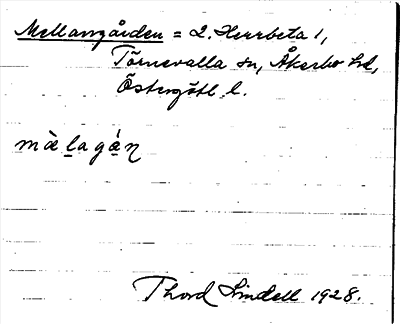 Mellangården = 2. Herrbeta 1,
Törnevalla sn, Åkerbo hd,
Östergötl. l.
mä̀lagǻn
Thord Lindell 1928.